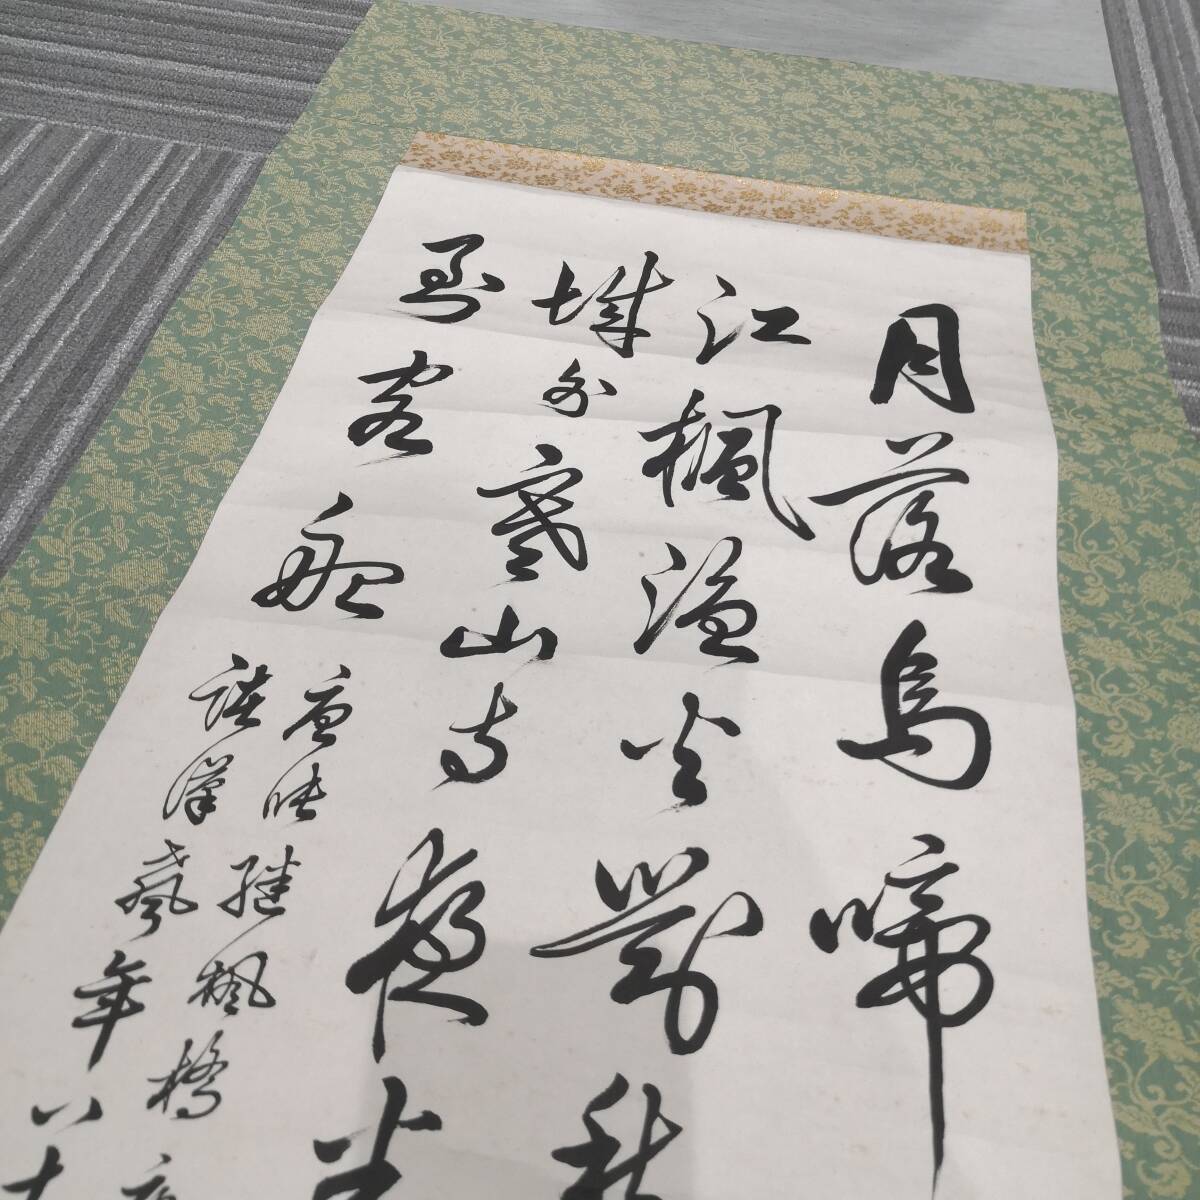 月落烏啼
江楓漁火對愁
城外寒山寺夜半
到客船
唐張繼楓橋夜
漢英年八十